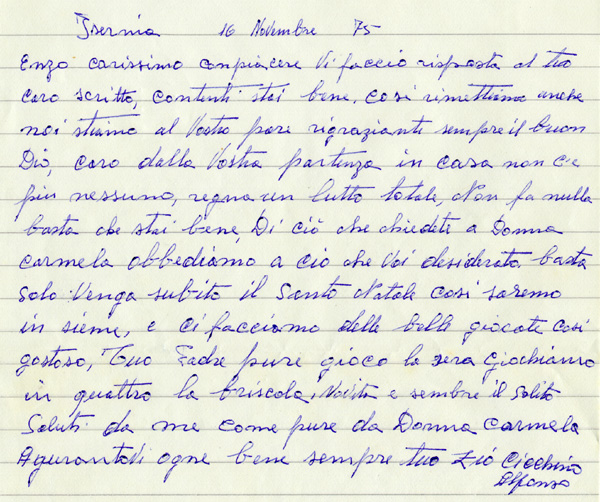 Isernia 16 Novembre 75
Enzo carissimo conpiacere Vi faccio risposta al tuo
caro scritto, contenti stai bene. cosi rimettiamo anche
noi stiamo al Vostro pare rigrazianti sempre il buon
Dio, caro dalla Vostra partenza in casa non c'e
piu nessuno, regna un lutto totale, Non fa nulla
basta che stai bene, Di ciò che chiedete a Donna
Carmela obbediamo a ciò che Voi desiderate basta
Solo: Venga subito il Santo Natale cosi saremo
in sieme, e ci facciamo delle belle giocate cosi
gostoso, Tuo Padre pure gioco la sera giochiamo
in quattro la briscola, e sembre il Solito
Saluti da me come pure da Donna Carmela
Agurantoti ogne bene sempre tuo Zió Cicchino
Alfonso